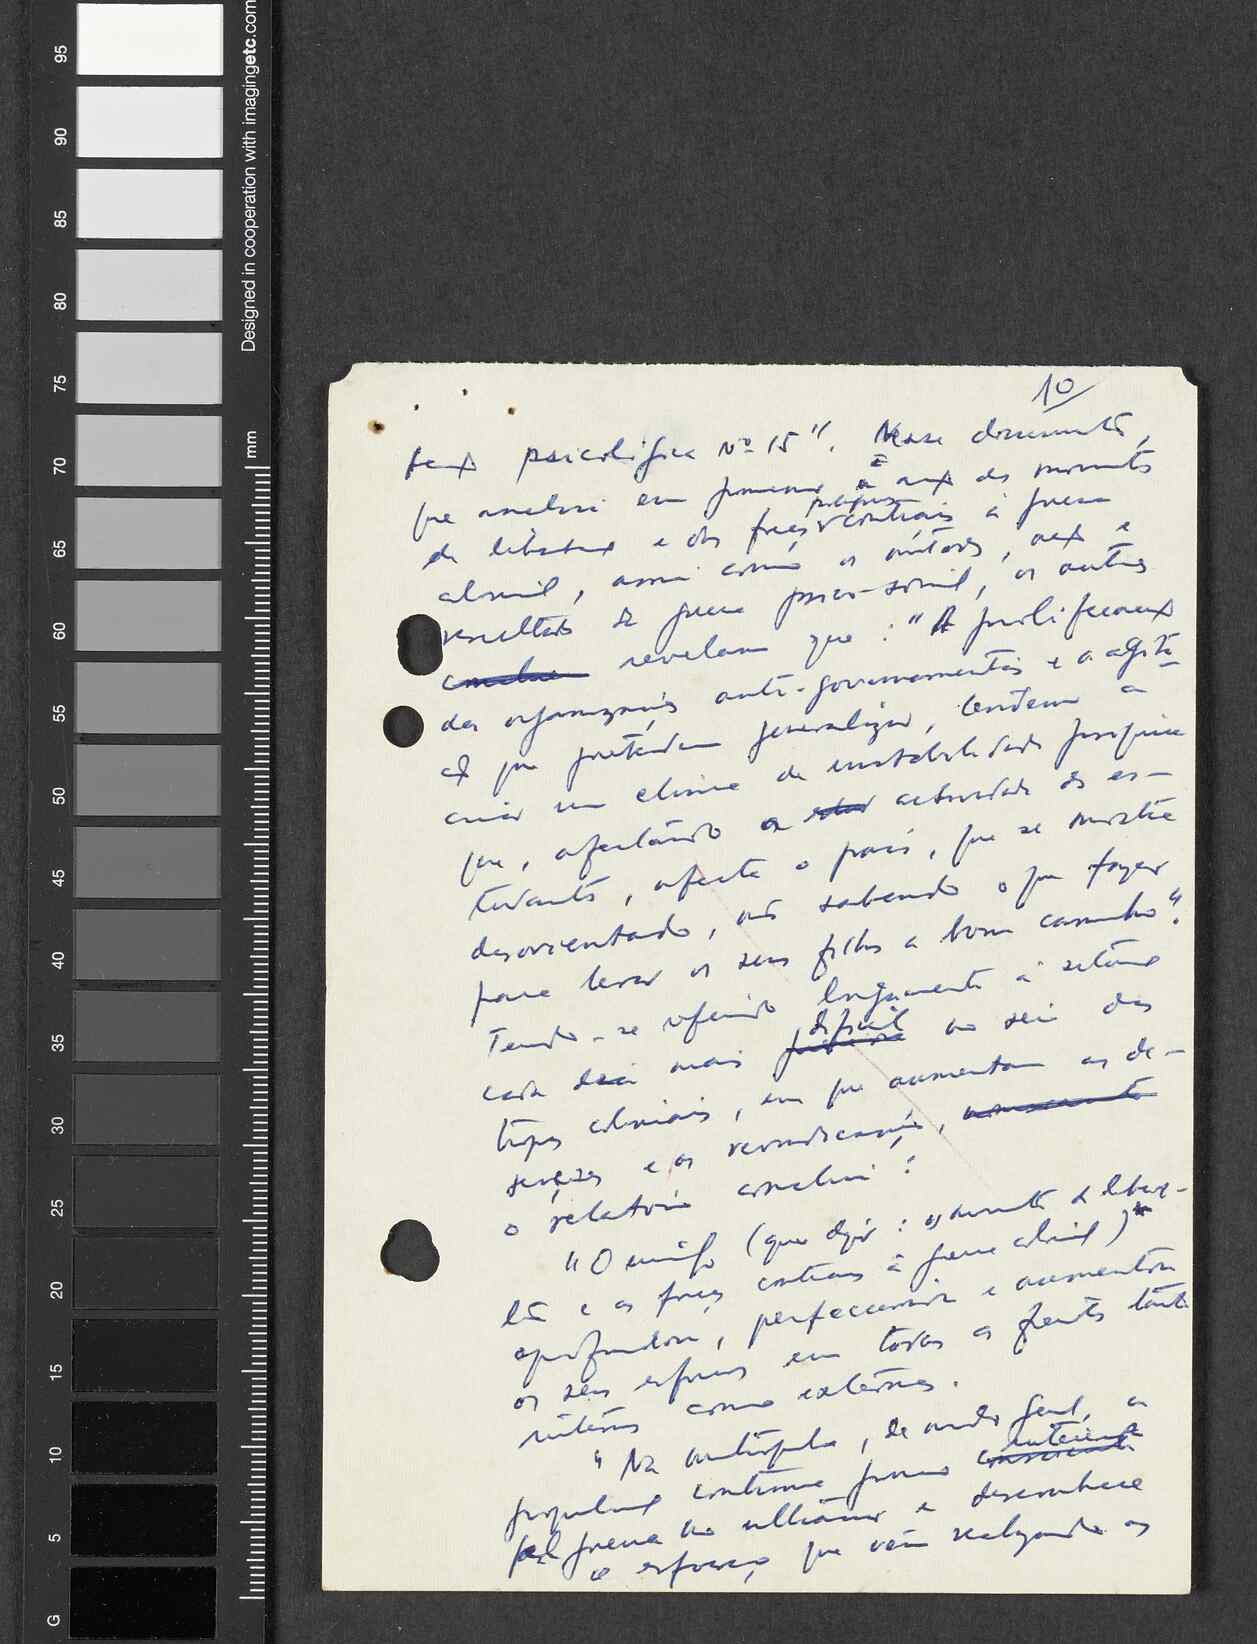 95
90
85
80
75
70
65
60
55
50
45
40
35
30
25
20
15
10
5
G
mm
Designed in cooperation with imagingetc.com
10
psicológica Nº 15". Nesse documento,
que analisa em pormenor a acção dos movimentos
de libertação e das forças portuguesas contrárias à guerra
colonial, assim como os
resultados da guerra psico-social, os autores
revelam que: "A proliferação
das organizações anti-governamentais e a agita-
ção que pretendem generalizar, tendem a
criar um clima de instabilidade porque
que, afectando a actividade dos es-
tudantes, afecta o país, que se mostra
desorientado, não sabendo o que fazer
para levar os seus filhos a bom caminho".
Tendo-se referido longamente à situação
cada dia mais difícil no seio das
tropas coloniais, em que aumentam as de-
serções e as reivindicações,
o relatório conclui:
"O inimigo (quer dizer: o movimento de liberta-
ção e as forças contrárias à guerra colonial)
aprofundou, perfeccionou e aumentou
os seus esforços em todas as frentes tanto
internas como externas.
"Na metrópole, de modo geral, a
população continua pouco
pela guerra no ultramar e desconhece
o esforço que vêm realizando as